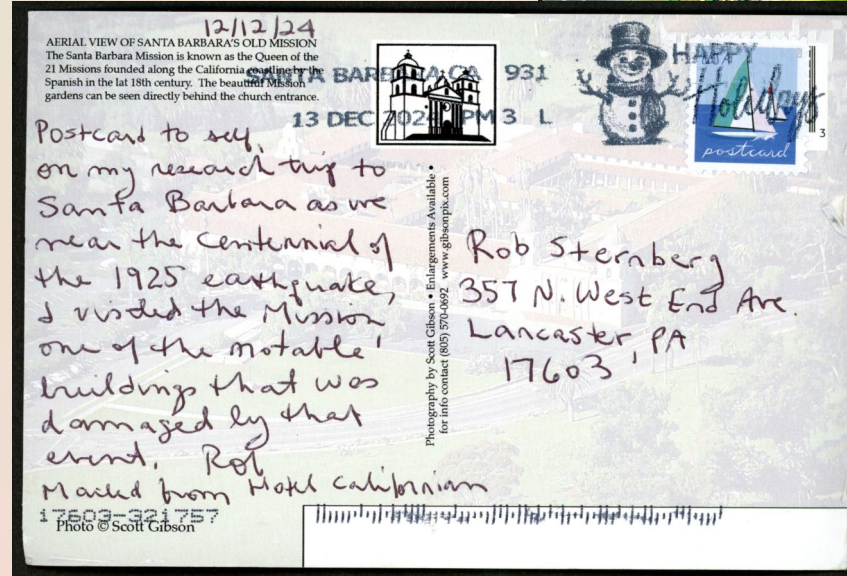 12/12/24
AERIAL VIEW OF SANTA BARBARA'S OLD MISSION
The Santa Barbara Mission is known as the Queen of the
21 Missions founded along the California coastline by the
Spanish in the lat 18th century. The beautiful Mission
gardens can be seen directly behind the church entrance.
SANTA BARBARA CA 931
13 DEC 2024 PM 3 L
HAPPY
Holidays
USA
postcard
3
Postcard to self,
on my research trip to
Santa Barbara as we
near the Centennial of
the 1925 earthquake,
I visited the Mission,
one of the notable
buildings that was
damaged by that
event. Rob
Mailed from Hotel Californian
Photography by Scott Gibson • Enlargements Available •
for info contact (805) 570-0692 www.gibsonpix.com
Rob Sternberg
357 N. West End Ave.
Lancaster, PA
17603
17603-321757
Photo © Scott Gibson